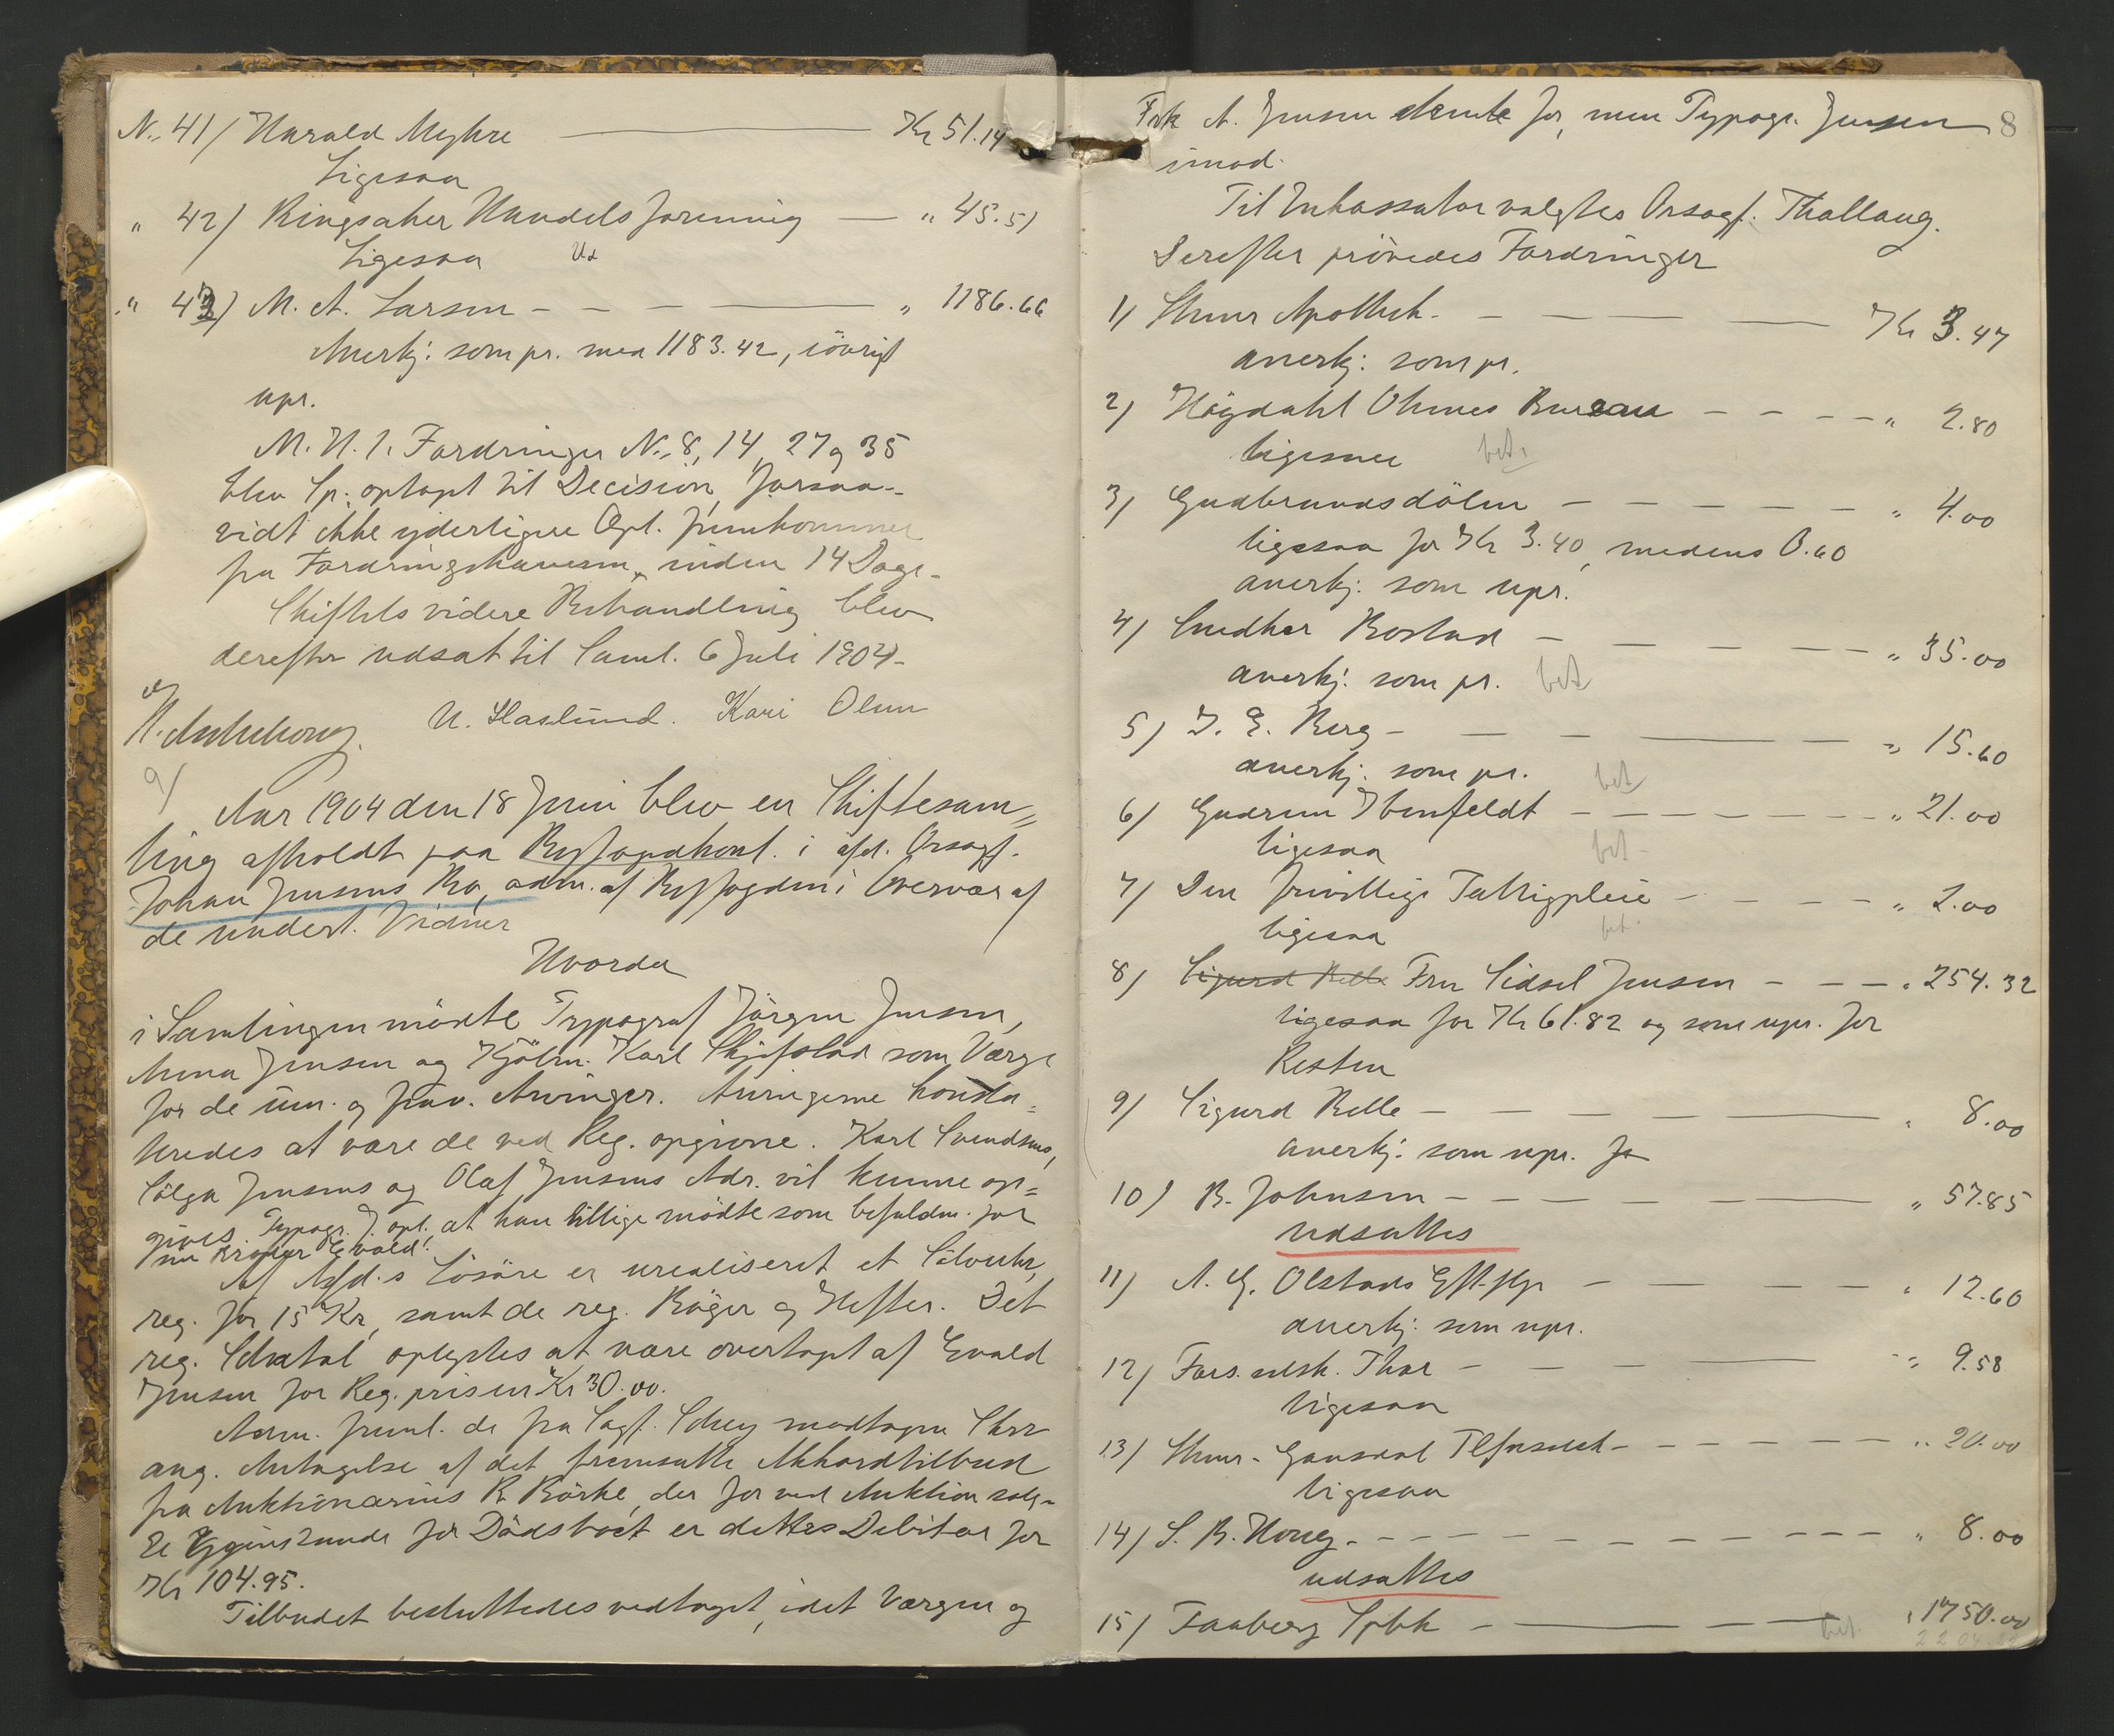 N. 41/ Harald Myhre — Kr 51.14
Ligesaa
" 42/ Ringsaker Handelsforening — " 45.51
Ligesaa
" 43/ M. A. Larsen - - - — " 1186.66
Anerkj: som pr. med 1183.42, iövrigt
upr.
M. H. t. Fordringer N. 8, 14, 27 og 35
blev Sp. optagt til Decision, forsaa-
vidt ikke yderligere Opl. fremkommer
fra Fordringshaveren inden 14 Dage.
Skiftets videre Behandling blev
derefter udsat til Saml. 6 Juli 1904-
U. Haslund. Kari Olsen
9/
Aar 1904 den 18 Juni blev en Skiftesam=
ling afholdt paa Byfogedkont. i afd. Orsagf.
Johan Jensens Bo, adm. af Byfogden i Overvær af
de undert. Vidner
Hvorda
i Samlingen mödte Typograf Jörgen Jensen,
Anna Jensen og Kjölm. Karl Skjefstad som Værge
for de um. og frav. Arvinger. Arvingerne konsta=
teredes at være de ved Reg. opgivne. Karl Svendsens,
Sölga Jensens og Olaf Jensens Adr. vil kunne op=
gives. Typogr. J. opl. at han tillige mödte som befuldm. for
sin Broder Evald.
Af Afd.s Lösöre er urealiseret et Sölvuhr,
reg. for 15 Kr, samt de reg. Böger og Hefter. Det
reg. Schatol oplystes at være overtagt af Evald
Jensen for Reg. prisen Kr 30.00.
Adm. freml. de fra Sagf. Schey modtagne Skr
ang. Antagelse af det fremsatte Akkordtilbud
fra Auktionarius R. Börke, der for ved Auktion solg-
te Gjenstande for Dödsboet er dettes Debitor for
Kr 104.95.
Tilbudet besluttedes vedtaget, idet Værgen og
8
Frk A. Jensen stemte for, men Typogr. Jensen
imod.
Til Inkassator valgtes Orsagf. Thallaug.
Derefter prövedes Fordringer
1/ Lhmr Apothek - - — — Kr 3.47
anerkj: som pr.
2/ Högdahl Ohmes Bureau - - - - " 2.80
ligesaa bet.
3/ Gudbrandsdölen - - - - - " 4.00
ligesaa for Kr 3.40, medens 0.60
anerkj: som upr.
4/ Snedker Bostad - — - — - " 35.00
anerkj: som pr. bet
5/ J. E. Berg - — - — - " 15.60
anerkj: som pr. bet
6/ Gudrun Ibenfeldt - - - - - - - " 21.00
ligesaa bet
7/ Den frivillige Fattigpleie - - - - " 2.00
ligesaa bet
8/ Sigurd Belle Fru Sidsel Jensen - - - " 254.32
ligesaa for Kr 61.82 og som upr. for
Resten
9/ Sigurd Belle - — - — " 8.00
anerkj: som upr. Ja
10/ B. Johnsen - - - - - — " 57.85
udsattes
11/ A. G. Olstads Eft.flgr - — - — " 12.60
anerkj: som upr.
12/ Fors. selsk. Thor - — - — " 9.58
ligesaa
13/ Lhmr-Gausdal Tlfselsk - - - - - - " 20.00
ligesaa
14/ S. B. Houg - - - - - - - - - " 8.00
udsattes
15/ Faaberg Spbk - — - — bet. " 1750.00